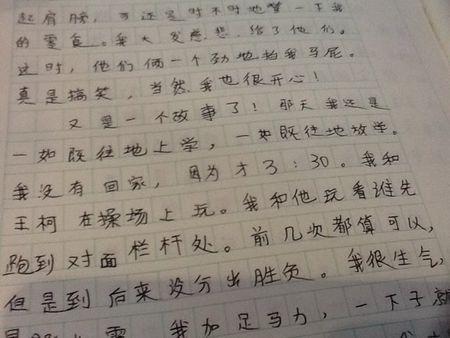 起肩膀，可还是时不时地赞一下我
的零食。我大发慈悲，给了他们。
这时，他们俩一个劲地拍我马屁。
真是搞笑，当然我也很开心！
又是一个故事了！那天我还是
一如既往地上学，一如既往地放学。
我没有回家，因为才3:30。我和
王柯在操场上玩。我和他玩看谁先
跑到对面栏杆处。前几次都算可以，
但是到后来没分出胜负。我很生气，
我加足马力，一下子